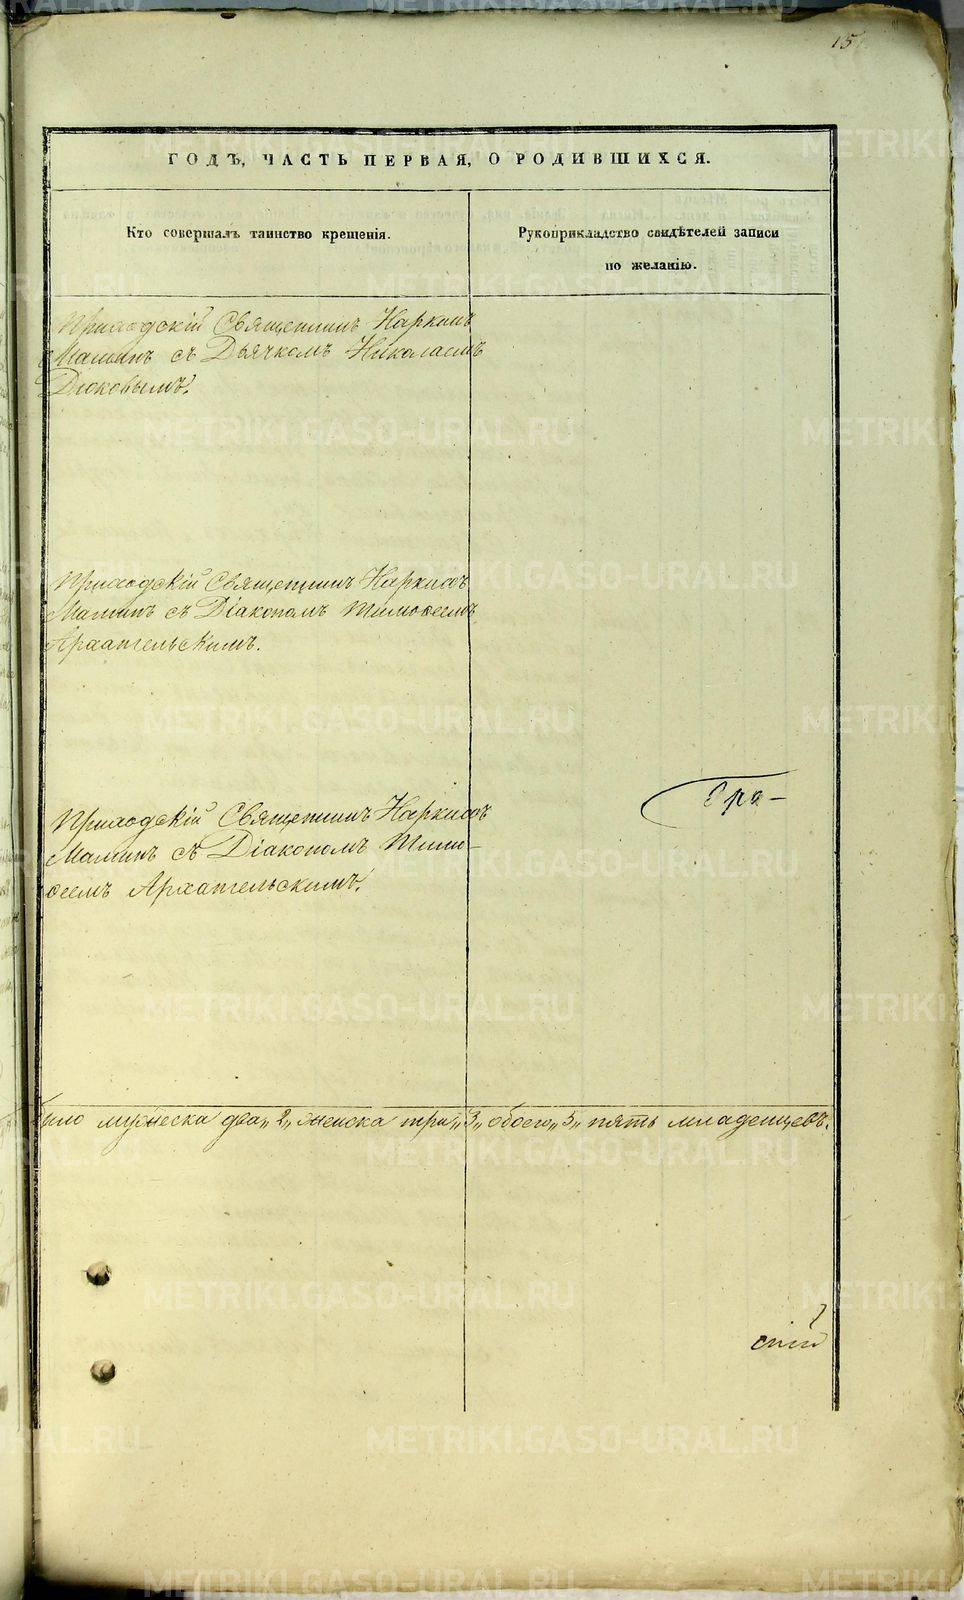 15
ГОДЪ, ЧАСТЬ ПЕРВАЯ, О РОДИВШИХСЯ.
Кто совершалъ таинство крещенія.
Рукоприкладство свидѣтелей записи
по желанію.
Приходскій Священникъ Наркисъ
Маминъ съ Дьячкомъ Николаемъ
Дюковымъ.
Приходскій Священникъ Наркисъ
Маминъ съ Діакономъ Тимоѳеемъ
Архангельскимъ.
Приходскій Священникъ Наркисъ
Маминъ съ Діакономъ Тимо-
ѳеемъ Архангельскимъ.
Гра-
было мужеска два„ 2„ женска три„ 3„ обоего„ 5„ пять младенцевъ.
METRIKI.GASO-URAL.RU